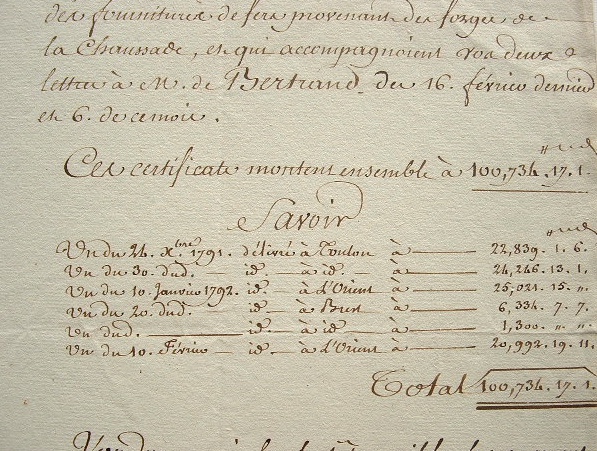 des fournitures de fers provenant des forges de
la Chaussade, et qui accompagnoient vos deux
lettres à M. de Bertrand des 16. février dernier
et 6. de ce mois.
Ces certificats montent ensemble à 100,734. 17. 1.
Savoir
Un du 24. Xbre 1791. délivré à Toulon à 22,839. 1. 6.
Un du 30. dud. id. à id. à 24,246. 13. 1.
Un du 10. Janvier 1792. id. à l'Orient à 25,021. 15. "
Un du 20. dud. id. à Brest à 6,334. 7. 7.
Un dud. id. à id. à 1,300. " "
Un du 10. Février id. à l'Orient à 20,992. 19. 11.
Total 100,734. 17. 1.